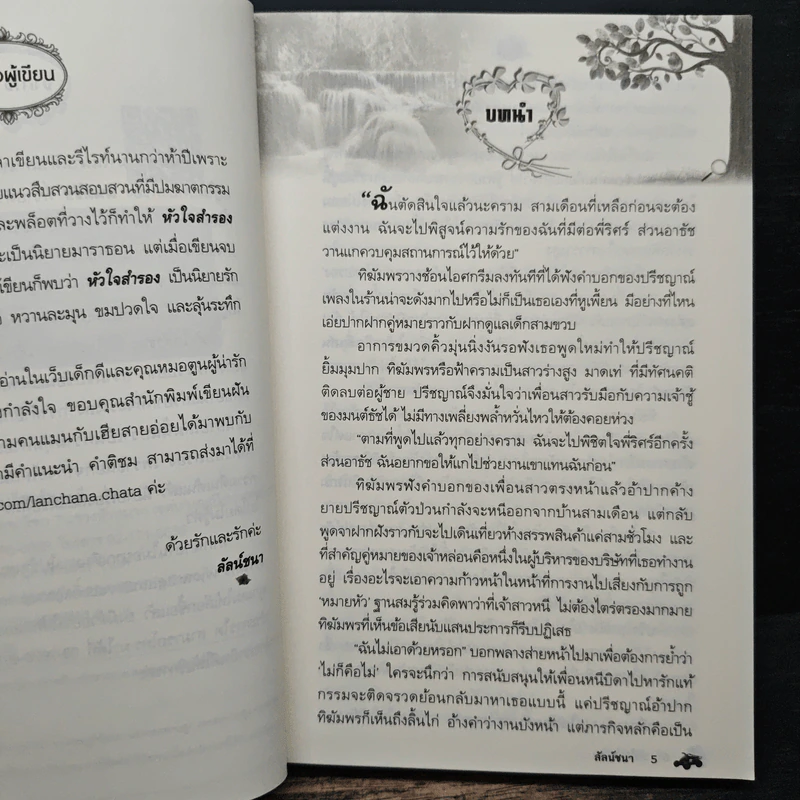 ผู้เขียน
าเขียนและรีไรท์นานกว่าห้าปีเพราะ
แนวสืบสวนสอบสวนที่มีปมฆาตกรรม
ละพล็อตที่วางไว้ก็ทำให้ หัวใจสำรอง
ะเป็นนิยายมาราธอน แต่เมื่อเขียนจบ
เขียนก็พบว่า หัวใจสำรอง เป็นนิยายรัก
หวานละมุน ขมปวดใจ และลุ้นระทึก
อ่านในเว็บเด็กดีและคุณหมอตูนผู้น่ารัก
กำลังใจ ขอบคุณสำนักพิมพ์เขียนฝัน
ามคนแมนกับเฮียสายอ่อยได้มาพบกับ
มีคำแนะนำ คำติชม สามารถส่งมาได้ที่
com/lanchana.chata ค่ะ
ด้วยรักและรักค่ะ
ลัลน์ชนา
บทนำ
“ฉันตัดสินใจแล้วนะคราม สามเดือนที่เหลือก่อนจะต้อง
แต่งงาน ฉันจะไปพิสูจน์ความรักของฉันที่มีต่อพี่ริศร์ ส่วนอาธัช
วานแกควบคุมสถานการณ์ไว้ให้ด้วย”
ทิฆัมพรวางช้อนไอศกรีมลงทันทีที่ได้ฟังคำบอกของปรีชญาณ์
เพลงในร้านน่าจะดังมากไปหรือไม่ก็เป็นเธอเองที่หูเพี้ยน มีอย่างที่ไหน
เอ่ยปากฝากคู่หมายราวกับฝากดูแลเด็กสามขวบ
อาการขมวดคิ้วมุ่นนิ่งงันรอฟังเธอพูดใหม่ทำให้ปรีชญาณ์
ยิ้มมุมปาก ทิฆัมพรหรือฟ้าครามเป็นสาวร่างสูง มาดเท่ ที่มีทัศนคติ
ติดลบต่อผู้ชาย ปรีชญาณ์จึงมั่นใจว่าเพื่อนสาวรับมือกับความเจ้าชู้
ของมนต์ธัชได้ ไม่มีทางเพลี่ยงพล้ำหวั่นไหวให้ต้องคอยห่วง
“ตามที่พูดไปแล้วทุกอย่างคราม ฉันจะไปพิชิตใจพี่ริศร์อีกครั้ง
ส่วนอาธัช ฉันอยากขอให้แกไปช่วยงานเขาแทนฉันก่อน”
ทิฆัมพรฟังคำบอกของเพื่อนสาวตรงหน้าแล้วอ้าปากค้าง
ยายปรีชญาณ์ตัวป่วนกำลังจะหนีออกจากบ้านสามเดือน แต่กลับ
พูดจาฝากฝังราวกับจะไปเดินเที่ยวห้างสรรพสินค้าแค่สามชั่วโมง และ
ที่สำคัญคู่หมายของเจ้าหล่อนคือหนึ่งในผู้บริหารของบริษัทที่เธอทำงาน
อยู่ เรื่องอะไรจะเอาความก้าวหน้าในหน้าที่การงานไปเสี่ยงกับการถูก
‘หมายหัว’ ฐานสมรู้ร่วมคิดพาว่าที่เจ้าสาวหนี ไม่ต้องไตร่ตรองมากมาย
ทิฆัมพรที่เห็นข้อเสียนับแสนประการก็รีบปฏิเสธ
“ฉันไม่เอาด้วยหรอก” บอกพลางส่ายหน้าไปมาเพื่อต้องการย้ำว่า
‘ไม่ก็คือไม่’ ใครจะนึกว่า การสนับสนุนให้เพื่อนหนีบิดาไปหารักแท้
กรรมจะติดจรวดย้อนกลับมาหาเธอแบบนี้ แค่ปรีชญาณ์อ้าปาก
ทิฆัมพรก็เห็นถึงลิ้นไก่ อ้างคำว่างานบังหน้า แต่ภารกิจหลักคือเป็น
ลัลน์ชนา 5